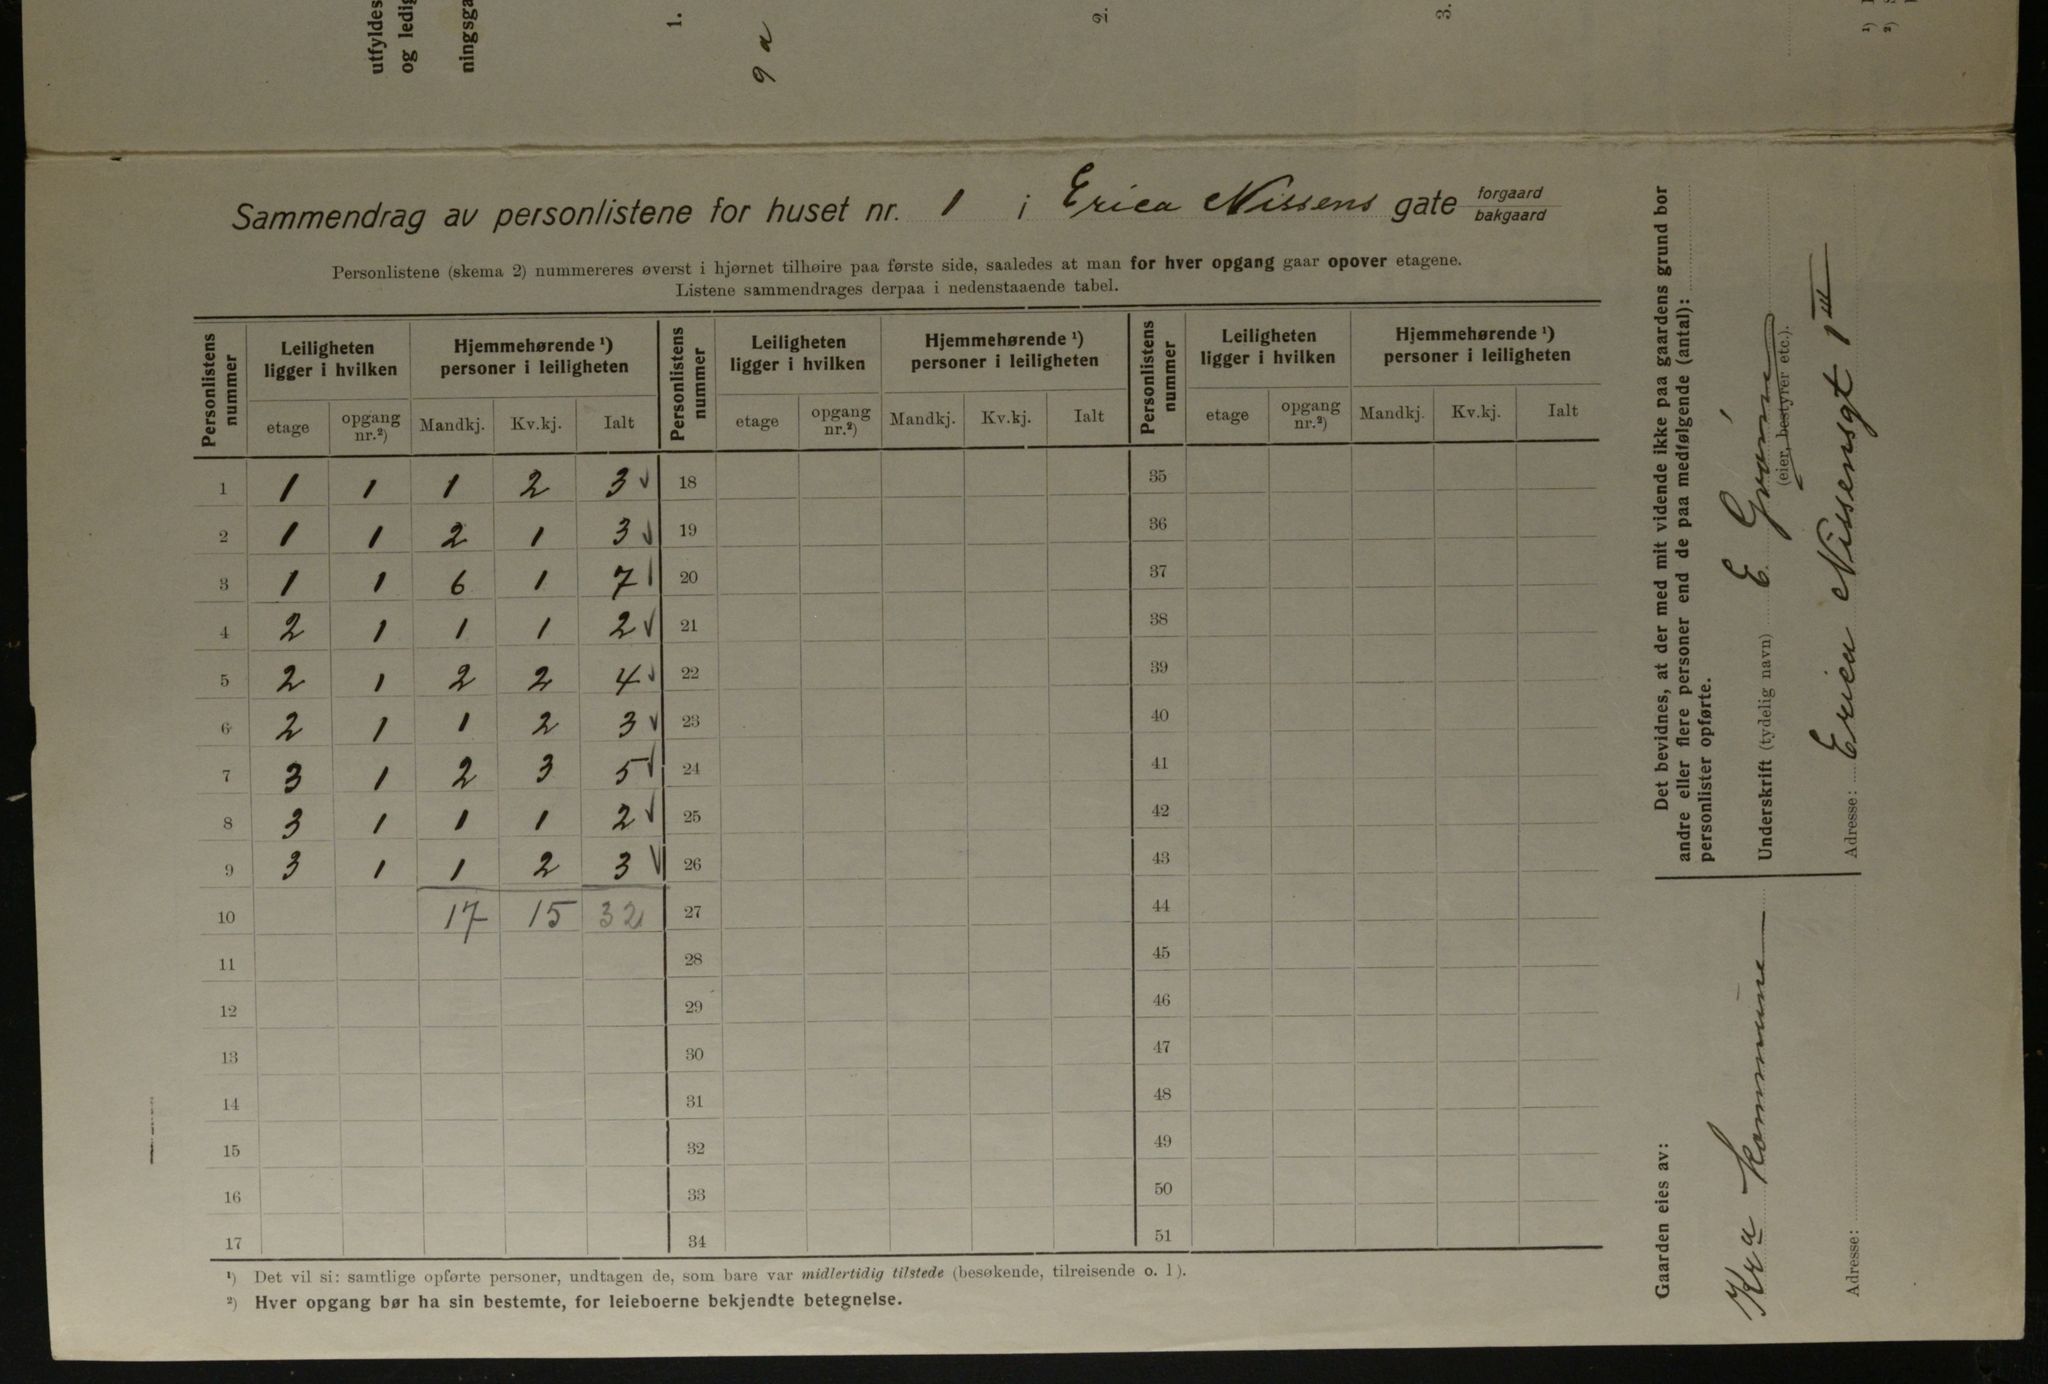 utfyldes
og ledig
ningsga
1.
9 a
2.
3.
Sammendrag av personlistene for huset nr. 1 i Erica Nissens gate forgaard bakgaard
Personlistene (skema 2) nummereres øverst i hjørnet tilhøire paa første side, saaledes at man for hver opgang gaar opover etagene.
Listene sammendrages derpaa i nedenstaaende tabel.
Personlistens nummer | Leiligheten ligger i hvilken | Hjemmehørende ¹) personer i leiligheten | Personlistens nummer | Leiligheten ligger i hvilken | Hjemmehørende ¹) personer i leiligheten | Personlistens nummer | Leiligheten ligger i hvilken | Hjemmehørende ¹) personer i leiligheten
etage | opgang nr.²) | Mandkj. | Kv.kj. | Ialt | etage | opgang nr.²) | Mandkj. | Kv.kj. | Ialt | etage | opgang nr.²) | Mandkj. | Kv.kj. | Ialt
1 | 1 | 1 | 1 | 2 | 3 ✓ | 18 | 35
2 | 1 | 1 | 2 | 1 | 3 ✓ | 19 | 36
3 | 1 | 1 | 6 | 1 | 7 ✓ | 20 | 37
4 | 2 | 1 | 1 | 1 | 2 ✓ | 21 | 38
5 | 2 | 1 | 2 | 2 | 4 ✓ | 22 | 39
6 | 2 | 1 | 1 | 2 | 3 ✓ | 23 | 40
7 | 3 | 1 | 2 | 3 | 5 ✓ | 24 | 41
8 | 3 | 1 | 1 | 1 | 2 ✓ | 25 | 42
9 | 3 | 1 | 1 | 2 | 3 ✓ | 26 | 43
10 | 17 | 15 | 32 | 27 | 44
11 | 28 | 45
12 | 29 | 46
13 | 30 | 47
14 | 31 | 48
15 | 32 | 49
16 | 33 | 50
17 | 34 | 51
¹) Det vil si: samtlige opførte personer, undtagen de, som bare var midlertidig tilstede (besøkende, tilreisende o. l).
²) Hver opgang bør ha sin bestemte, for leieboerne bekjendte betegnelse.
Det bevidnes, at der med mit vidende ikke paa gaardens grund bor
andre eller flere personer end de paa medfølgende (antal):
personlister opførte.
Underskrift (tydelig navn) E.
(eier, bestyrer etc.).
Adresse: Erica Nissensgt 1
Gaarden eies av:
Kra kommune
Adresse:
¹)
²)